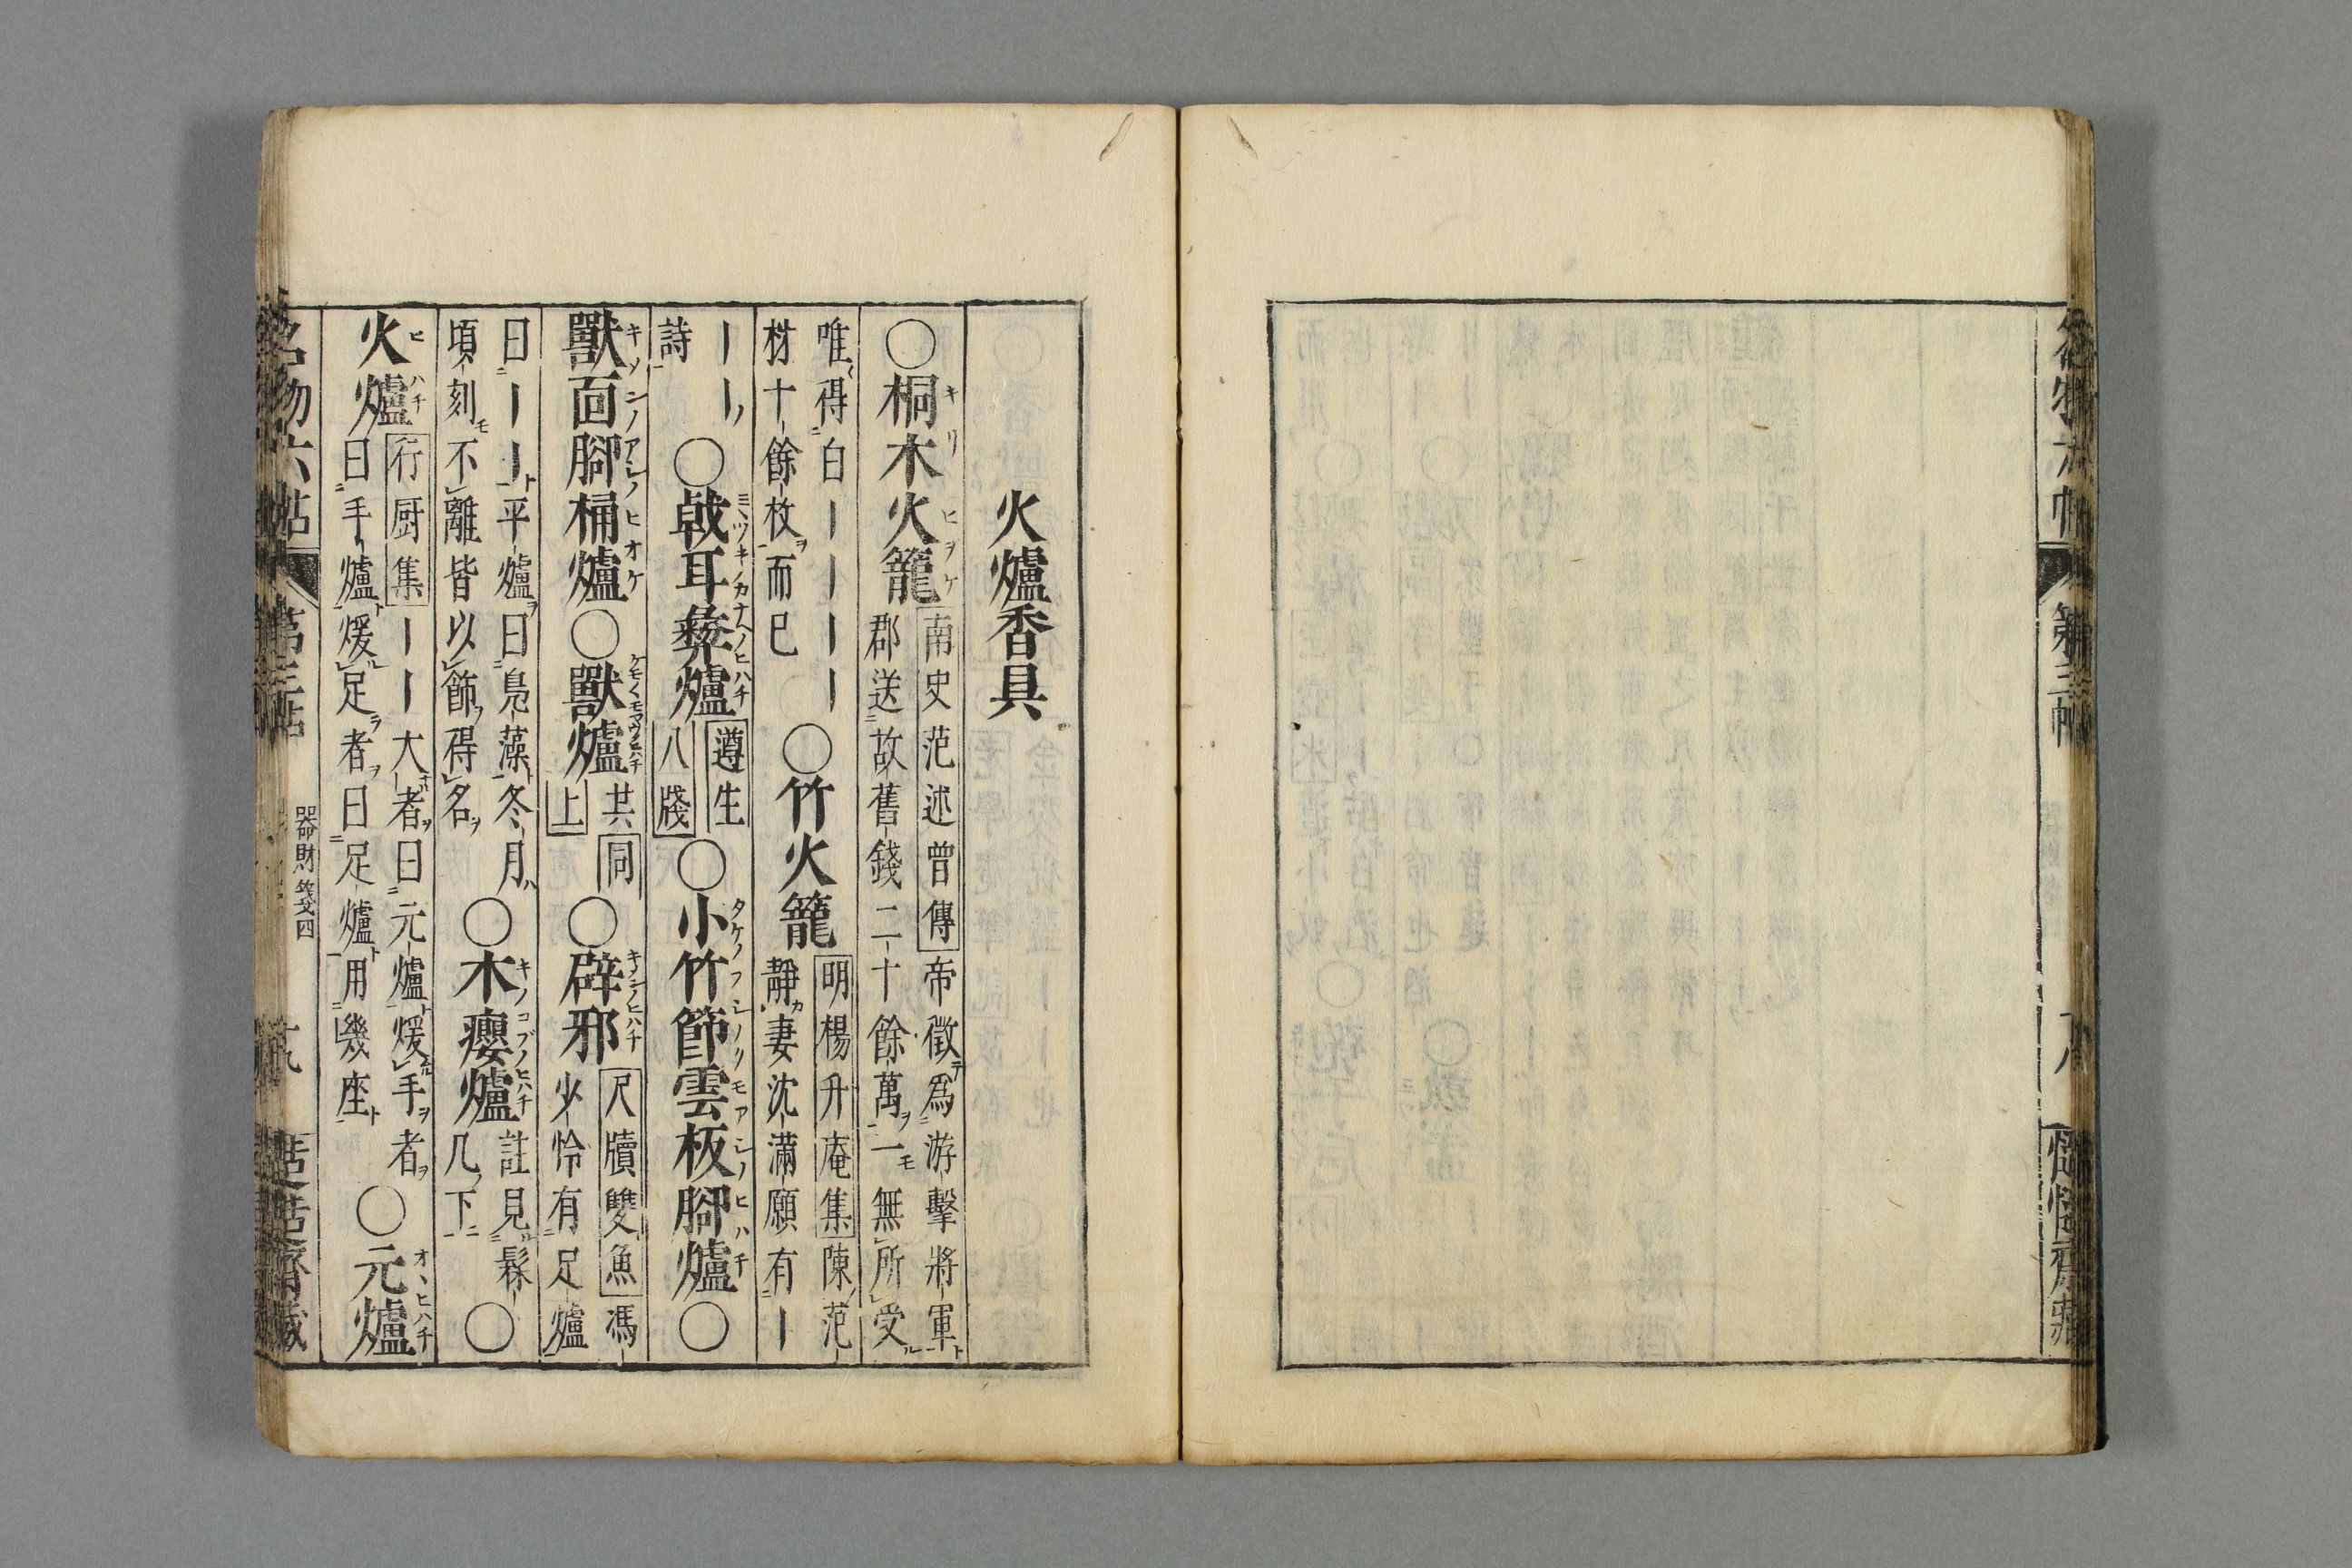 名物六帖 第三帖 十八
火爐香具
○桐木火籠 南史范述曾傳 帝徵爲游擊將軍
郡送故舊錢二十餘萬一無所受
唯得白｜｜｜｜ ○竹火籠 明楊升庵集 陳范
材十餘枚而已 靜妻沈滿願有｜
｜｜詩 ○戟耳彝爐 遵生八牋 ○小竹節雲板腳爐○
獸面腳桶爐○獸爐 共同上 ○辟邪 尺牘雙魚 馮
少怜有足爐
曰｜｜平爐曰鳧藻冬月 ○木癭爐 註見髹几下 ○
頃刻不離皆以飾得名
火爐 行厨集 ｜｜大者曰元爐煖手者 ○元爐
曰手爐煖足者曰足爐用幾座
名物六帖 第三帖 器財箋四 十九